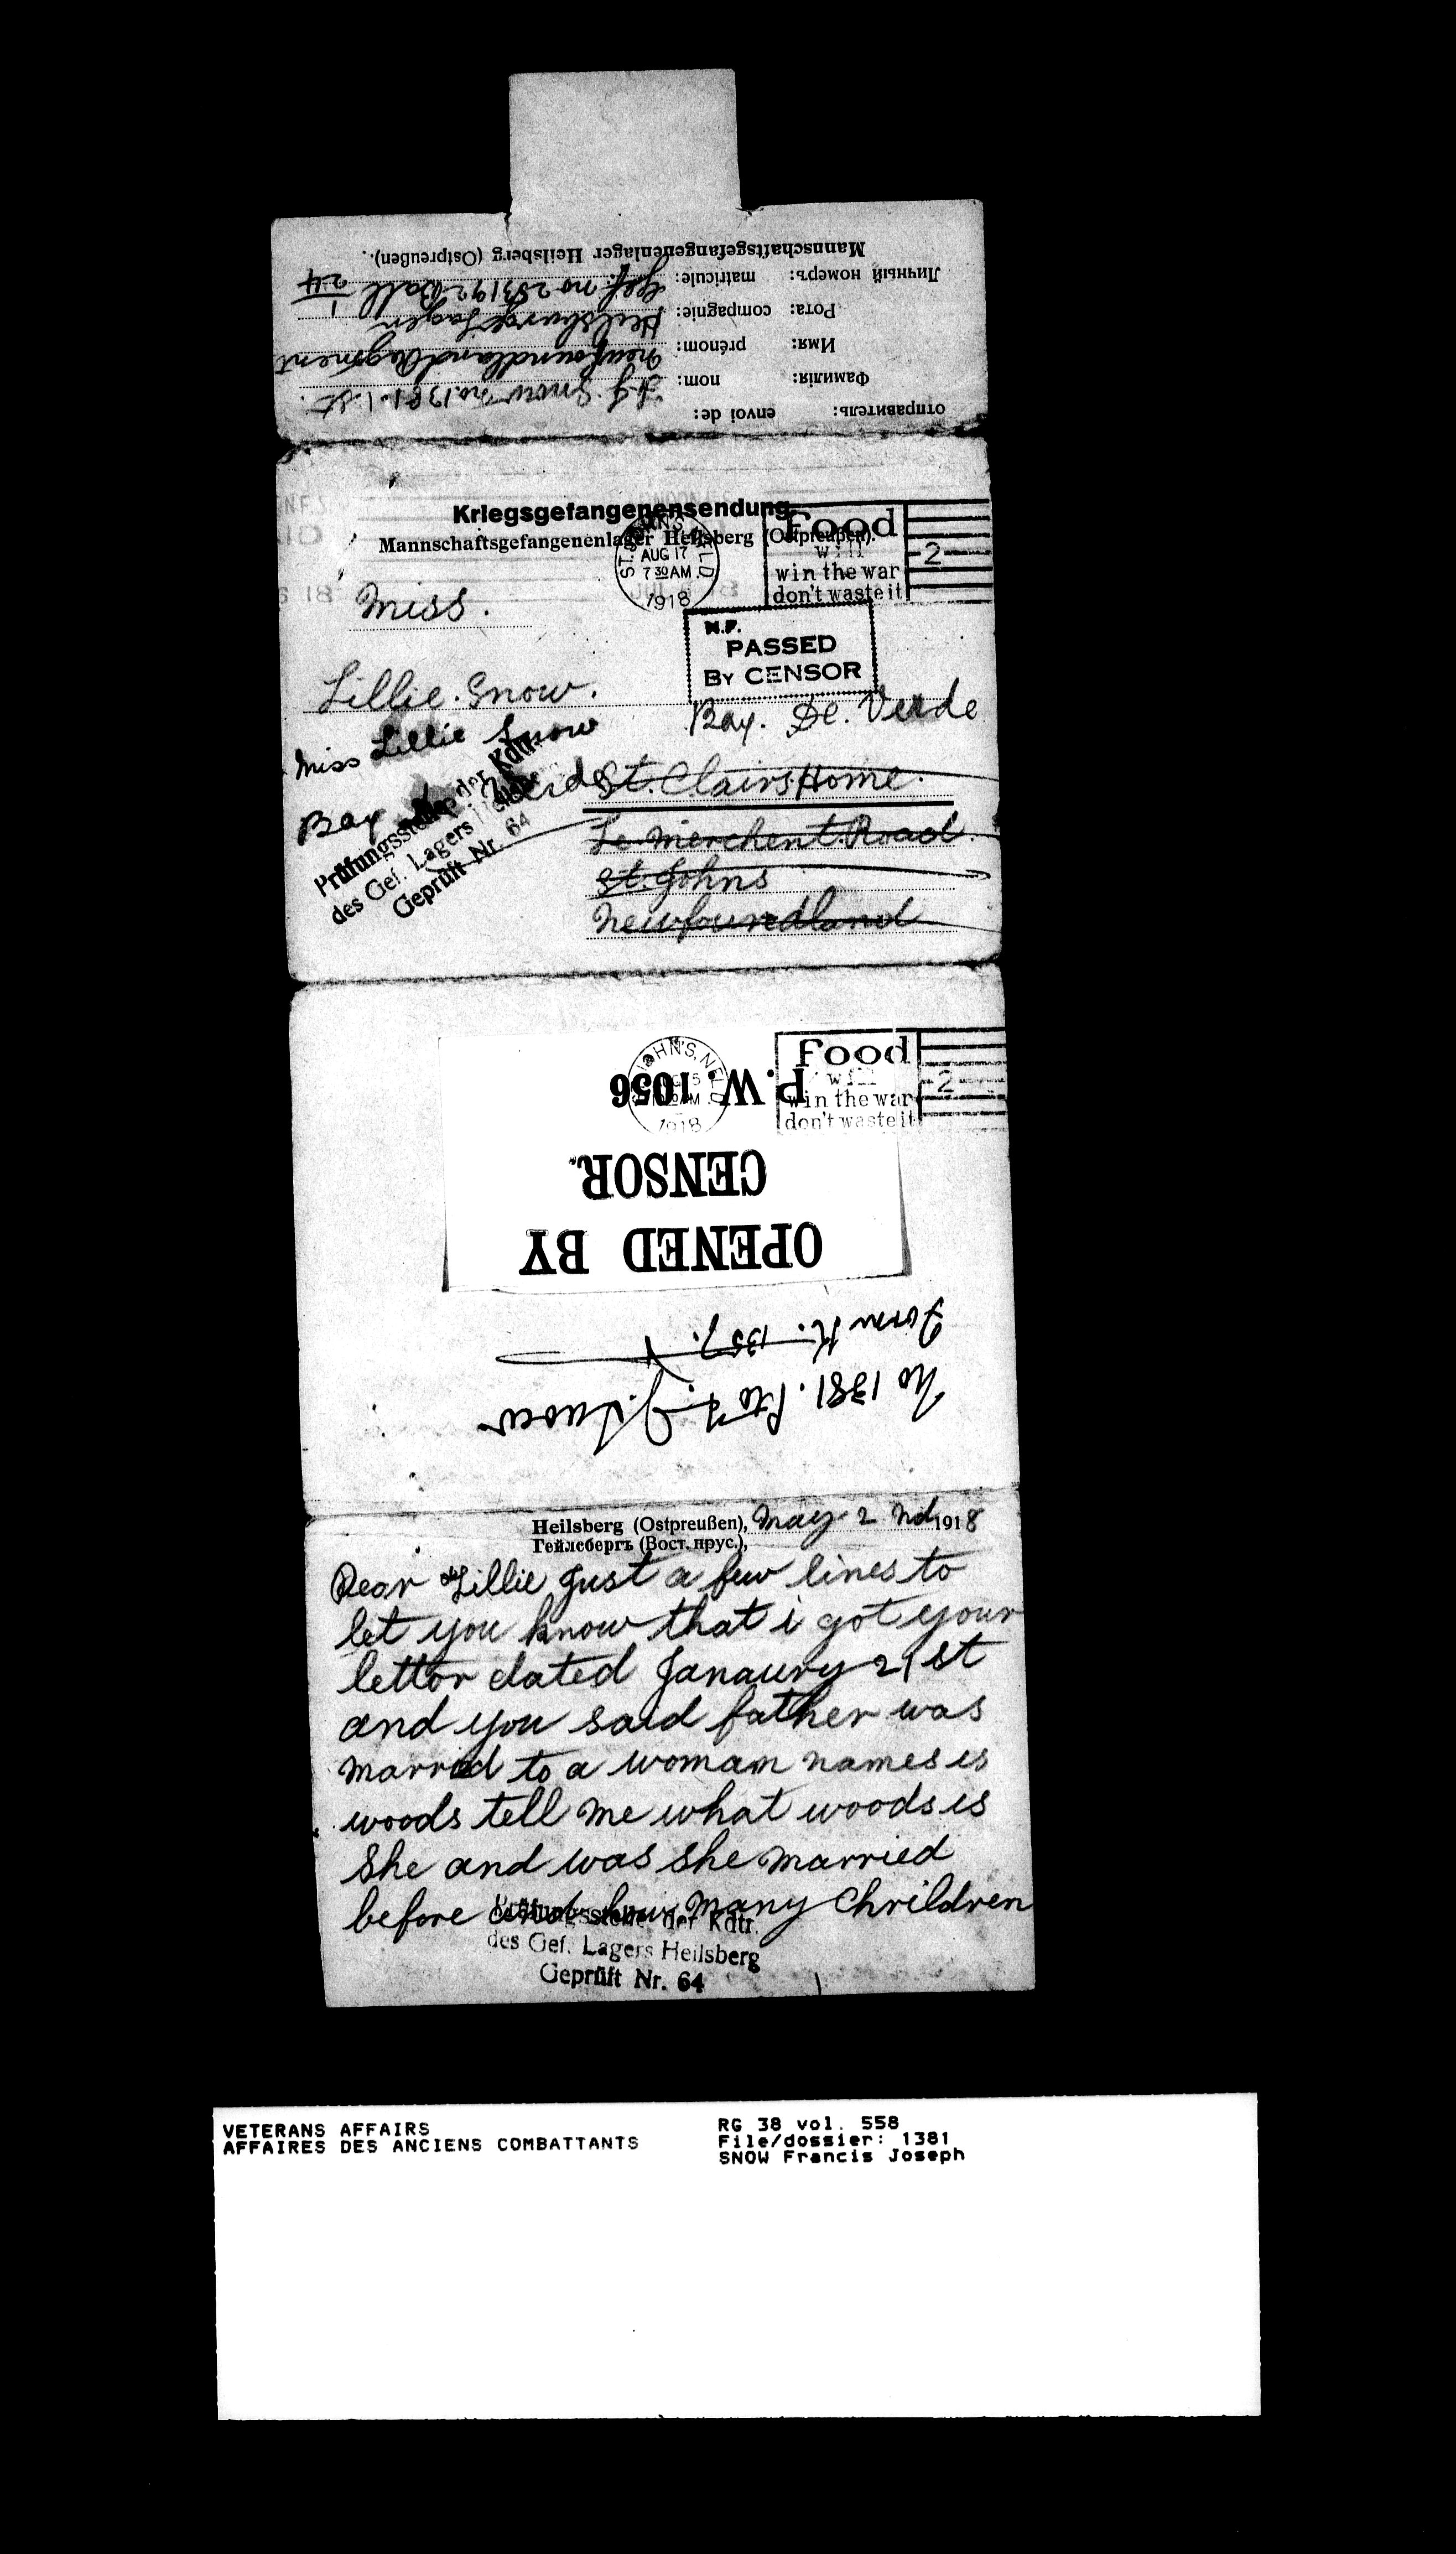 Mannschaftsgefangenenlager Heilsberg (Ostpreußen).
Личный номеръ: matricule: Gef. no 283192 Batt 1/24
Рота: compagnie: Heilsburge Lagen
Имя: prénom: Newfoundland Regiment
Фамилія: nom: F.J. Snow no. 1381. 1.st.
отправитель: envoi de:
Kriegsgefangenensendung
Mannschaftsgefangenenlager Heilsberg (Ostpreußen).
ST. JOHN'S, NFLD
AUG 17
7 30 AM
1918
Food
will
win the war
don't waste it
2
Miss.
N.F.
PASSED
BY CENSOR
Lillie. Snow.
Bay. De. Verde
Miss Lillie Snow
Bay de Verde
St. Clairs Home.
Le Merchent. Road.
St. Johns
Newfoundland
Prüfungsstelle der Kdtr.
des Gef. Lagers Heilsberg
Geprüft Nr. 64
ST. JOHN'S, NFLD
1918
Food
will
win the war
don't waste it
2
P.W. 1056
CENSOR.
OPENED BY
Form K. 1357.
No 1381. Pte F. J. Snow
Heilsberg (Ostpreußen), May 2 nd 1918
Гейлсбергъ (Вост. прус.),
Dear Lillie Just a few lines to
let you know that i got your
lettor dated Janaury 21st
and you said father was
married to a womam names is
woods tell me what woods is
She and was she married
before and how many Chrildren
Prüfungsstelle der Kdtr.
des Gef. Lagers Heilsberg
Geprüft Nr. 64
VETERANS AFFAIRS
AFFAIRES DES ANCIENS COMBATTANTS
RG 38 vol. 558
File/dossier: 1381
SNOW Francis Joseph